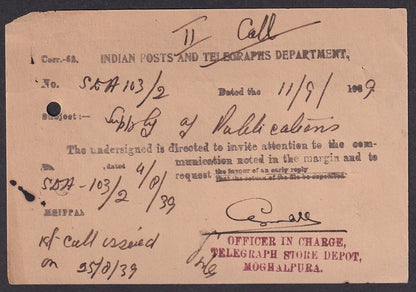 II Call
Corr.-62. INDIAN POSTS AND TELEGRAPHS DEPARTMENT.
No. SDA 103/2 Dated the 11/9/ 1939
Subject:- Supply of Publications
The undersigned is directed to invite attention to the com-
munication noted in the margin and to
request the favour of an early reply
that the return of the file be expedited.
No. dated 4/8/39
SDA-103/2
Ist call issued
on 25/8/39
OFFICER IN CHARGE,
TELEGRAPH STORE DEPOT,
MOGHALPURA.